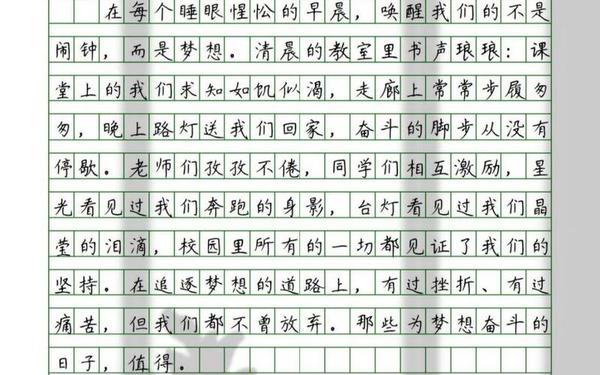 在每个睡眼惺忪的早晨，唤醒我们的不是
闹钟，而是梦想。清晨的教室里书声琅琅：课
堂上的我们求知如饥似渴，走廊上常常步履匆
匆，晚上路灯送我们回家，奋斗的脚步从没有
停歇。老师们孜孜不倦，同学们相互激励，星
光看见过我们奔跑的身影，台灯看见过我们晶
莹的泪滴，校园里所有的一切都见证了我们的
坚持。在追逐梦想的道路上，有过挫折、有过
痛苦，但我们都不曾放弃。那些为梦想奋斗的
日子，值得。